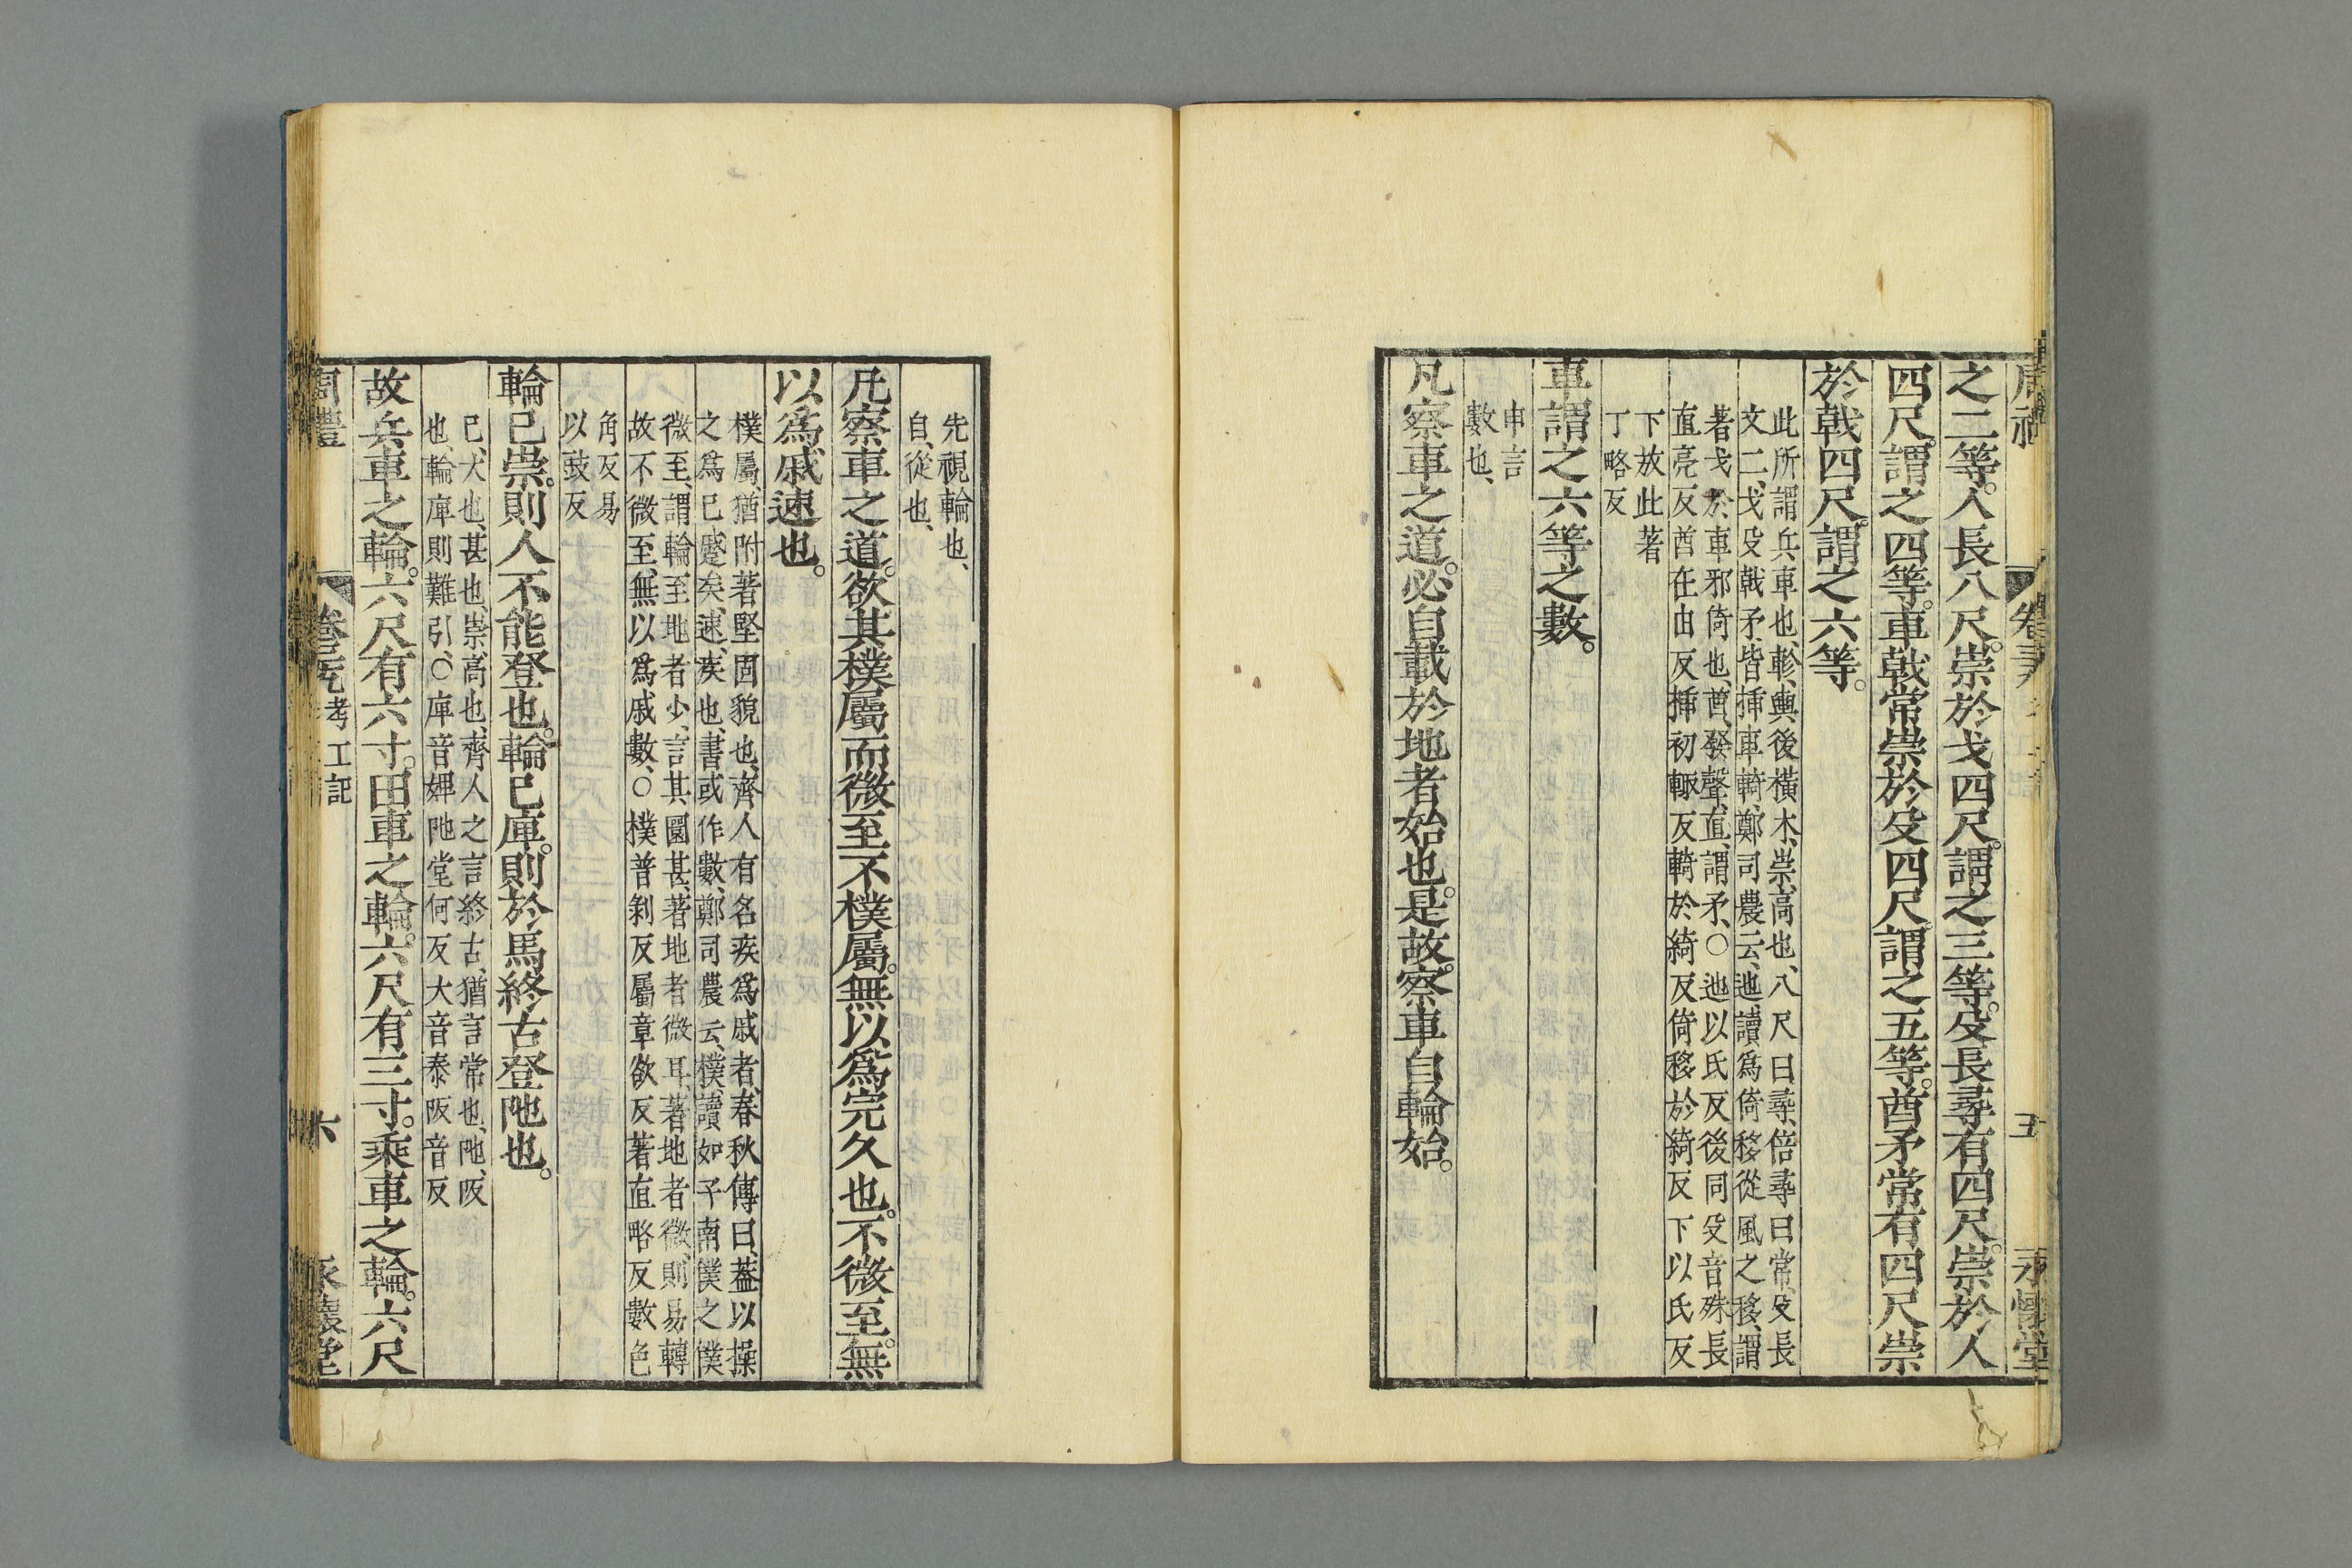 之二等。人長八尺。崇於戈四尺。謂之三等。殳長尋有四尺。崇於人
四尺。謂之四等。車戟常。崇於殳四尺。謂之五等。酋矛常有四尺。崇
於戟四尺。謂之六等。
此所謂兵車也、軫、輿後橫木、崇、高也、八尺曰尋、倍尋曰常、殳長
文二、戈殳戟矛、皆揷車輢、鄭司農云、迆、讀爲倚移從風之移、謂
著戈於車邪倚也、酋、發聲、直、謂矛、○迆以氏反後同殳音殊長
直亮反酋在由反揷初輒反輢於綺反倚移於綺反下以氏反
下放此著
丁略反
車謂之六等之數。
申言
數也、
凡察車之道。必自載於地者始也。是故。察車自輪始。
五
永懷堂
先視輪也、
自、從也、
凡察車之道。欲其樸屬而微至。不樸屬。無以爲完久也。不微至。無
以爲戚速也。
樸屬、猶附著堅固貌也、齊人有名疾爲戚者、春秋傳曰、蓋以操
之爲已蹙矣、速、疾也、書或作數、鄭司農云、樸、讀如子南僕之僕
微至、謂輪至地者少、言其圜甚、著地者微耳、著地者微、則易轉
故不微至、無以爲戚數、○樸普剝反屬章欲反著直略反數色
角反易
以豉反
輪已崇。則人不能登也。輪已庳。則於馬終古登阤也。
已、大也、甚也、崇、高也、齊人之言終古、猶言常也、阤、阪
也、輪庳則難引、○庳音婢阤堂何反大音泰阪音反
故兵車之輪。六尺有六寸。田車之輪。六尺有三寸。乘車之輪。六尺
周禮
考工記
六
永懷堂